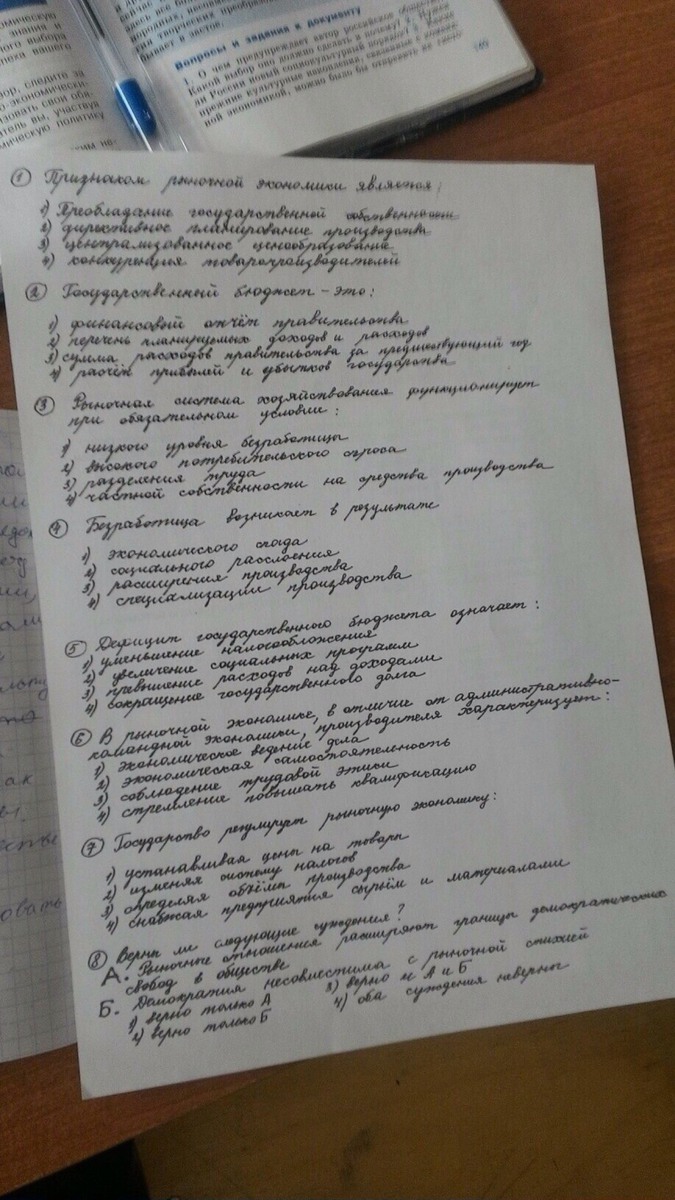 ическую
знания
ого выбора
пеха нашего
ор, следите за
о-экономически-
азовать свои обя-
тель вы, участвуя
мическую политику
Вопросы и задания к документу
1. О чем предупреждает автор российское
Какой выбор оно должно сделать и почему? 2.
ли России новый социокультурный порядок? 3.
прежние культурные накопления, связанные с
ной экономикой, можно было бы отправить на
① Признаком рыночной экономики является:
1) Преобладание государственной собственности
2) директивное планирование производства
3) централизованное ценообразование
4) конкуренция товаропроизводителей
② Государственный бюджет - это:
1) финансовый отчёт правительства
2) перечень планируемых доходов и расходов
3) сумма расходов правительства за предшествующий год
4) расчёт прибылей и убытков государства
③ Рыночная система хозяйствования функционирует
при обязательном условии:
1) низкого уровня безработицы
2) высокого потребительского спроса
3) разделения труда
4) частной собственности на средства производства
④ Безработица возникает в результате
1) экономического спада
2) социального расслоения
3) расширения производства
4) специализации производства
⑤ Дефицит государственного бюджета означает:
1) уменьшение налогообложения
2) увеличение социальных программ
3) превышение расходов над доходами
4) сокращение государственного долга
⑥ В рыночной экономике, в отличие от административно-
командной экономики, производителя характеризует:
1) экономическое ведение дела
2) экономическая самостоятельность
3) соблюдение трудовой этики
4) стремление повышать квалификацию
⑦ Государство регулирует рыночную экономику:
1) устанавливая цены на товары
2) изменяя систему налогов
3) определяя объёмы производства
4) снабжая предприятия сырьём и материалами
⑧ Верны ли следующие суждения?
А. Рыночные отношения расширяют границы демократических
свобод в обществе
Б. Демократия несовместима с рыночной стихией
1) верно только А 3) верно и А и Б
2) верно только Б 4) оба суждения неверны